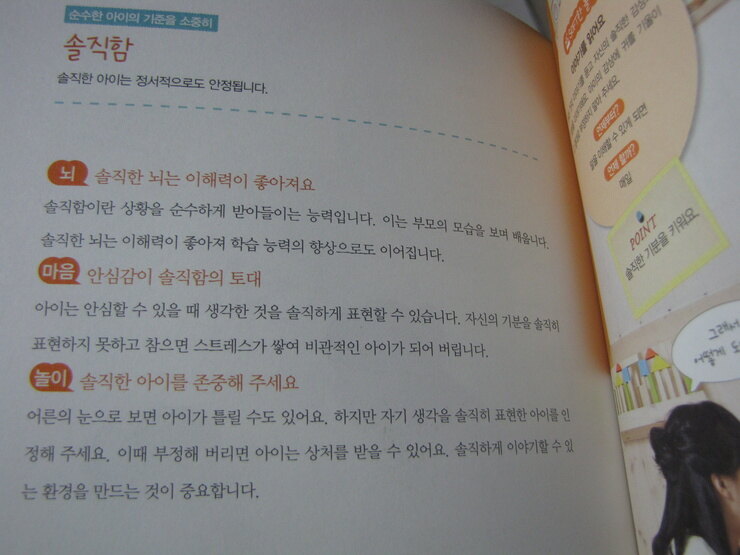 순수한 아이의 기준을 소중히
솔직함
솔직한 아이는 정서적으로도 안정됩니다.
뇌 솔직한 뇌는 이해력이 좋아져요
솔직함이란 상황을 순수하게 받아들이는 능력입니다. 이는 부모의 모습을 보며 배웁니다.
솔직한 뇌는 이해력이 좋아져 학습 능력의 향상으로도 이어집니다.
마음 안심감이 솔직함의 토대
아이는 안심할 수 있을 때 생각한 것을 솔직하게 표현할 수 있습니다. 자신의 기분을 솔직히
표현하지 못하고 참으면 스트레스가 쌓여 비관적인 아이가 되어 버립니다.
놀이 솔직한 아이를 존중해 주세요
어른의 눈으로 보면 아이가 틀릴 수도 있어요. 하지만 자기 생각을 솔직히 표현한 아이를 인
정해 주세요. 이때 부정해 버리면 아이는 상처를 받을 수 있어요. 솔직하게 이야기할 수 있
는 환경을 만드는 것이 중요합니다.
이야기를 읽어요
듣고 자신의 솔직한 감상
아이의 감상에 귀를 기울이
부정하지 말아 주세요.
언제부터?
말을 이해할 수 있게 되면
언제 할까?
매일
POINT
솔직한 기분을 키워요
그래서
어떻게 되